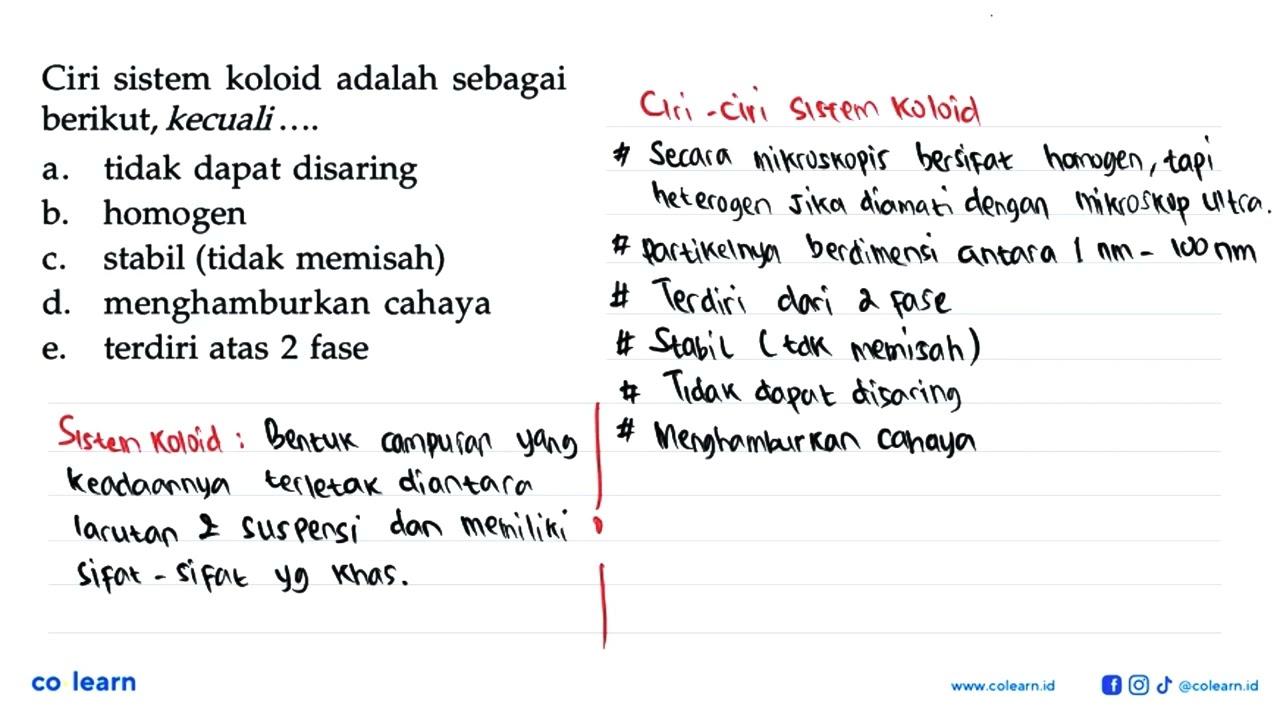 Ciri sistem koloid adalah sebagai
berikut, kecuali ....
a. tidak dapat disaring
b. homogen
c. stabil (tidak memisah)
d. menghamburkan cahaya
e. terdiri atas 2 fase
Sistem Koloid : Bentuk campuran yang
keadaannya terletak diantara
larutan & suspensi dan memiliki
sifat - sifat yg khas.
Ciri - ciri sistem koloid
# Secara mikroskopis bersifat homogen, tapi
heterogen jika diamati dengan mikroskop ultra.
# Partikelnya berdimensi antara 1 nm - 100 nm
# Terdiri dari 2 fase
# Stabil (tdk memisah)
# Tidak dapat disaring
# Menghamburkan cahaya
co learn
www.colearn.id
@colearn.id